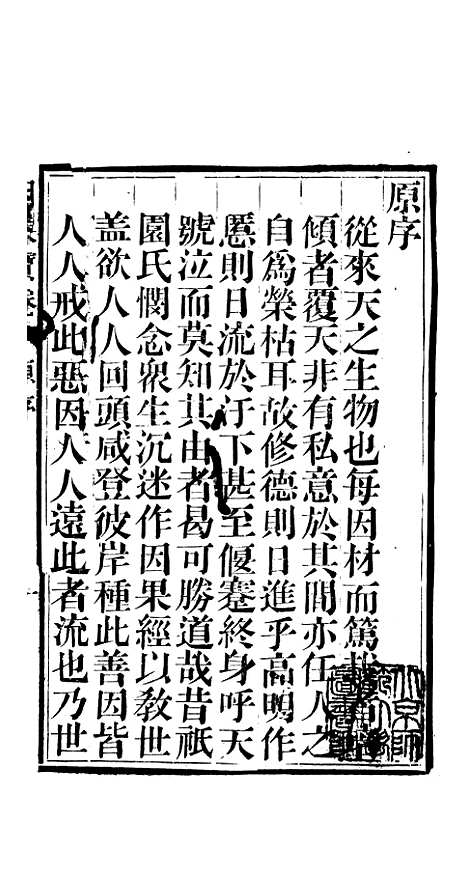 原序
從來天之生物也每因材而篤
傾者覆天非有私意於其間亦任人之
自爲榮枯耳故修德則日進乎高明作
慝則日流於汙下甚至偃蹇終身呼天
號泣而莫知其由者曷可勝道哉昔祇
園氏憫念衆生沉迷作因果經以敎世
蓋欲人人回頭咸登彼岸種此善因皆
人人戒此惡因人人遠此者流也乃世
原序